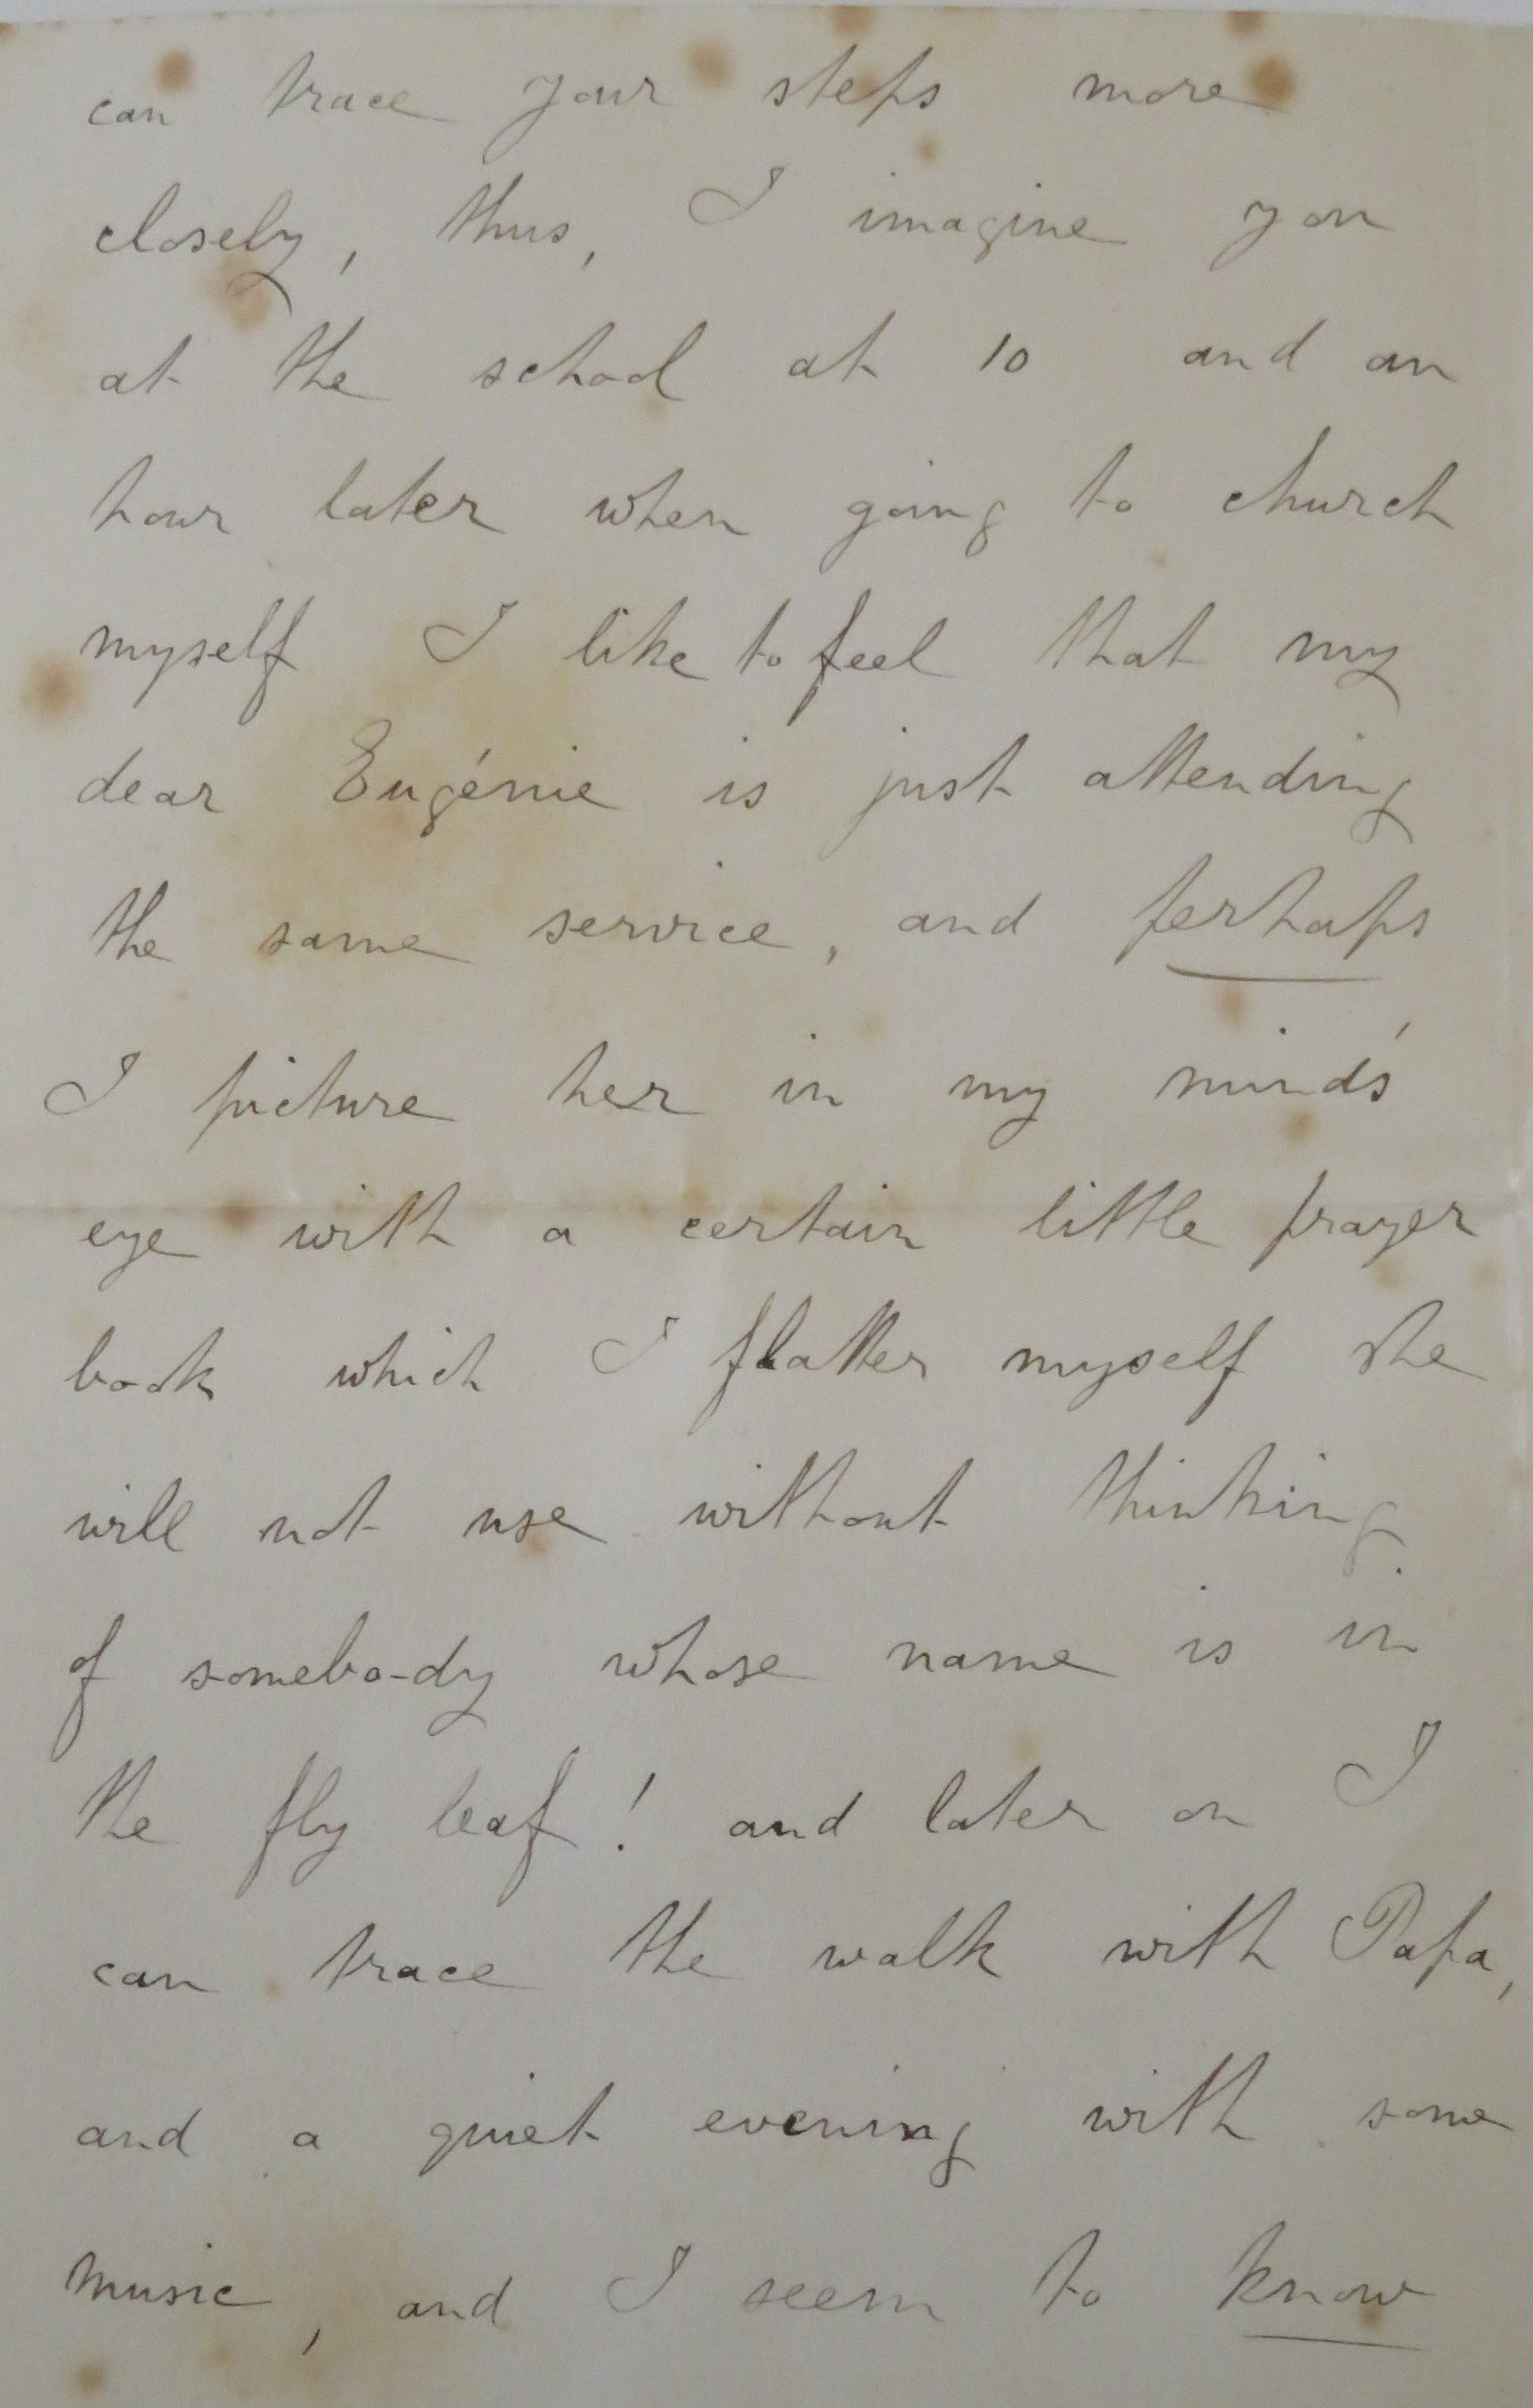 can trace your steps more
closely, thus, I imagine you
at the school at 10 and an
hour later when going to church
myself I like to feel that my
dear Eugénie is just attending
the same service, and perhaps
I picture her in my mind's
eye with a certain little prayer
book which I flatter myself she
will not use without thinking
of somebo-dy whose name is in
the fly leaf! and later on I
can trace the walk with Papa,
and a quiet evening with some
music, and I seem to know